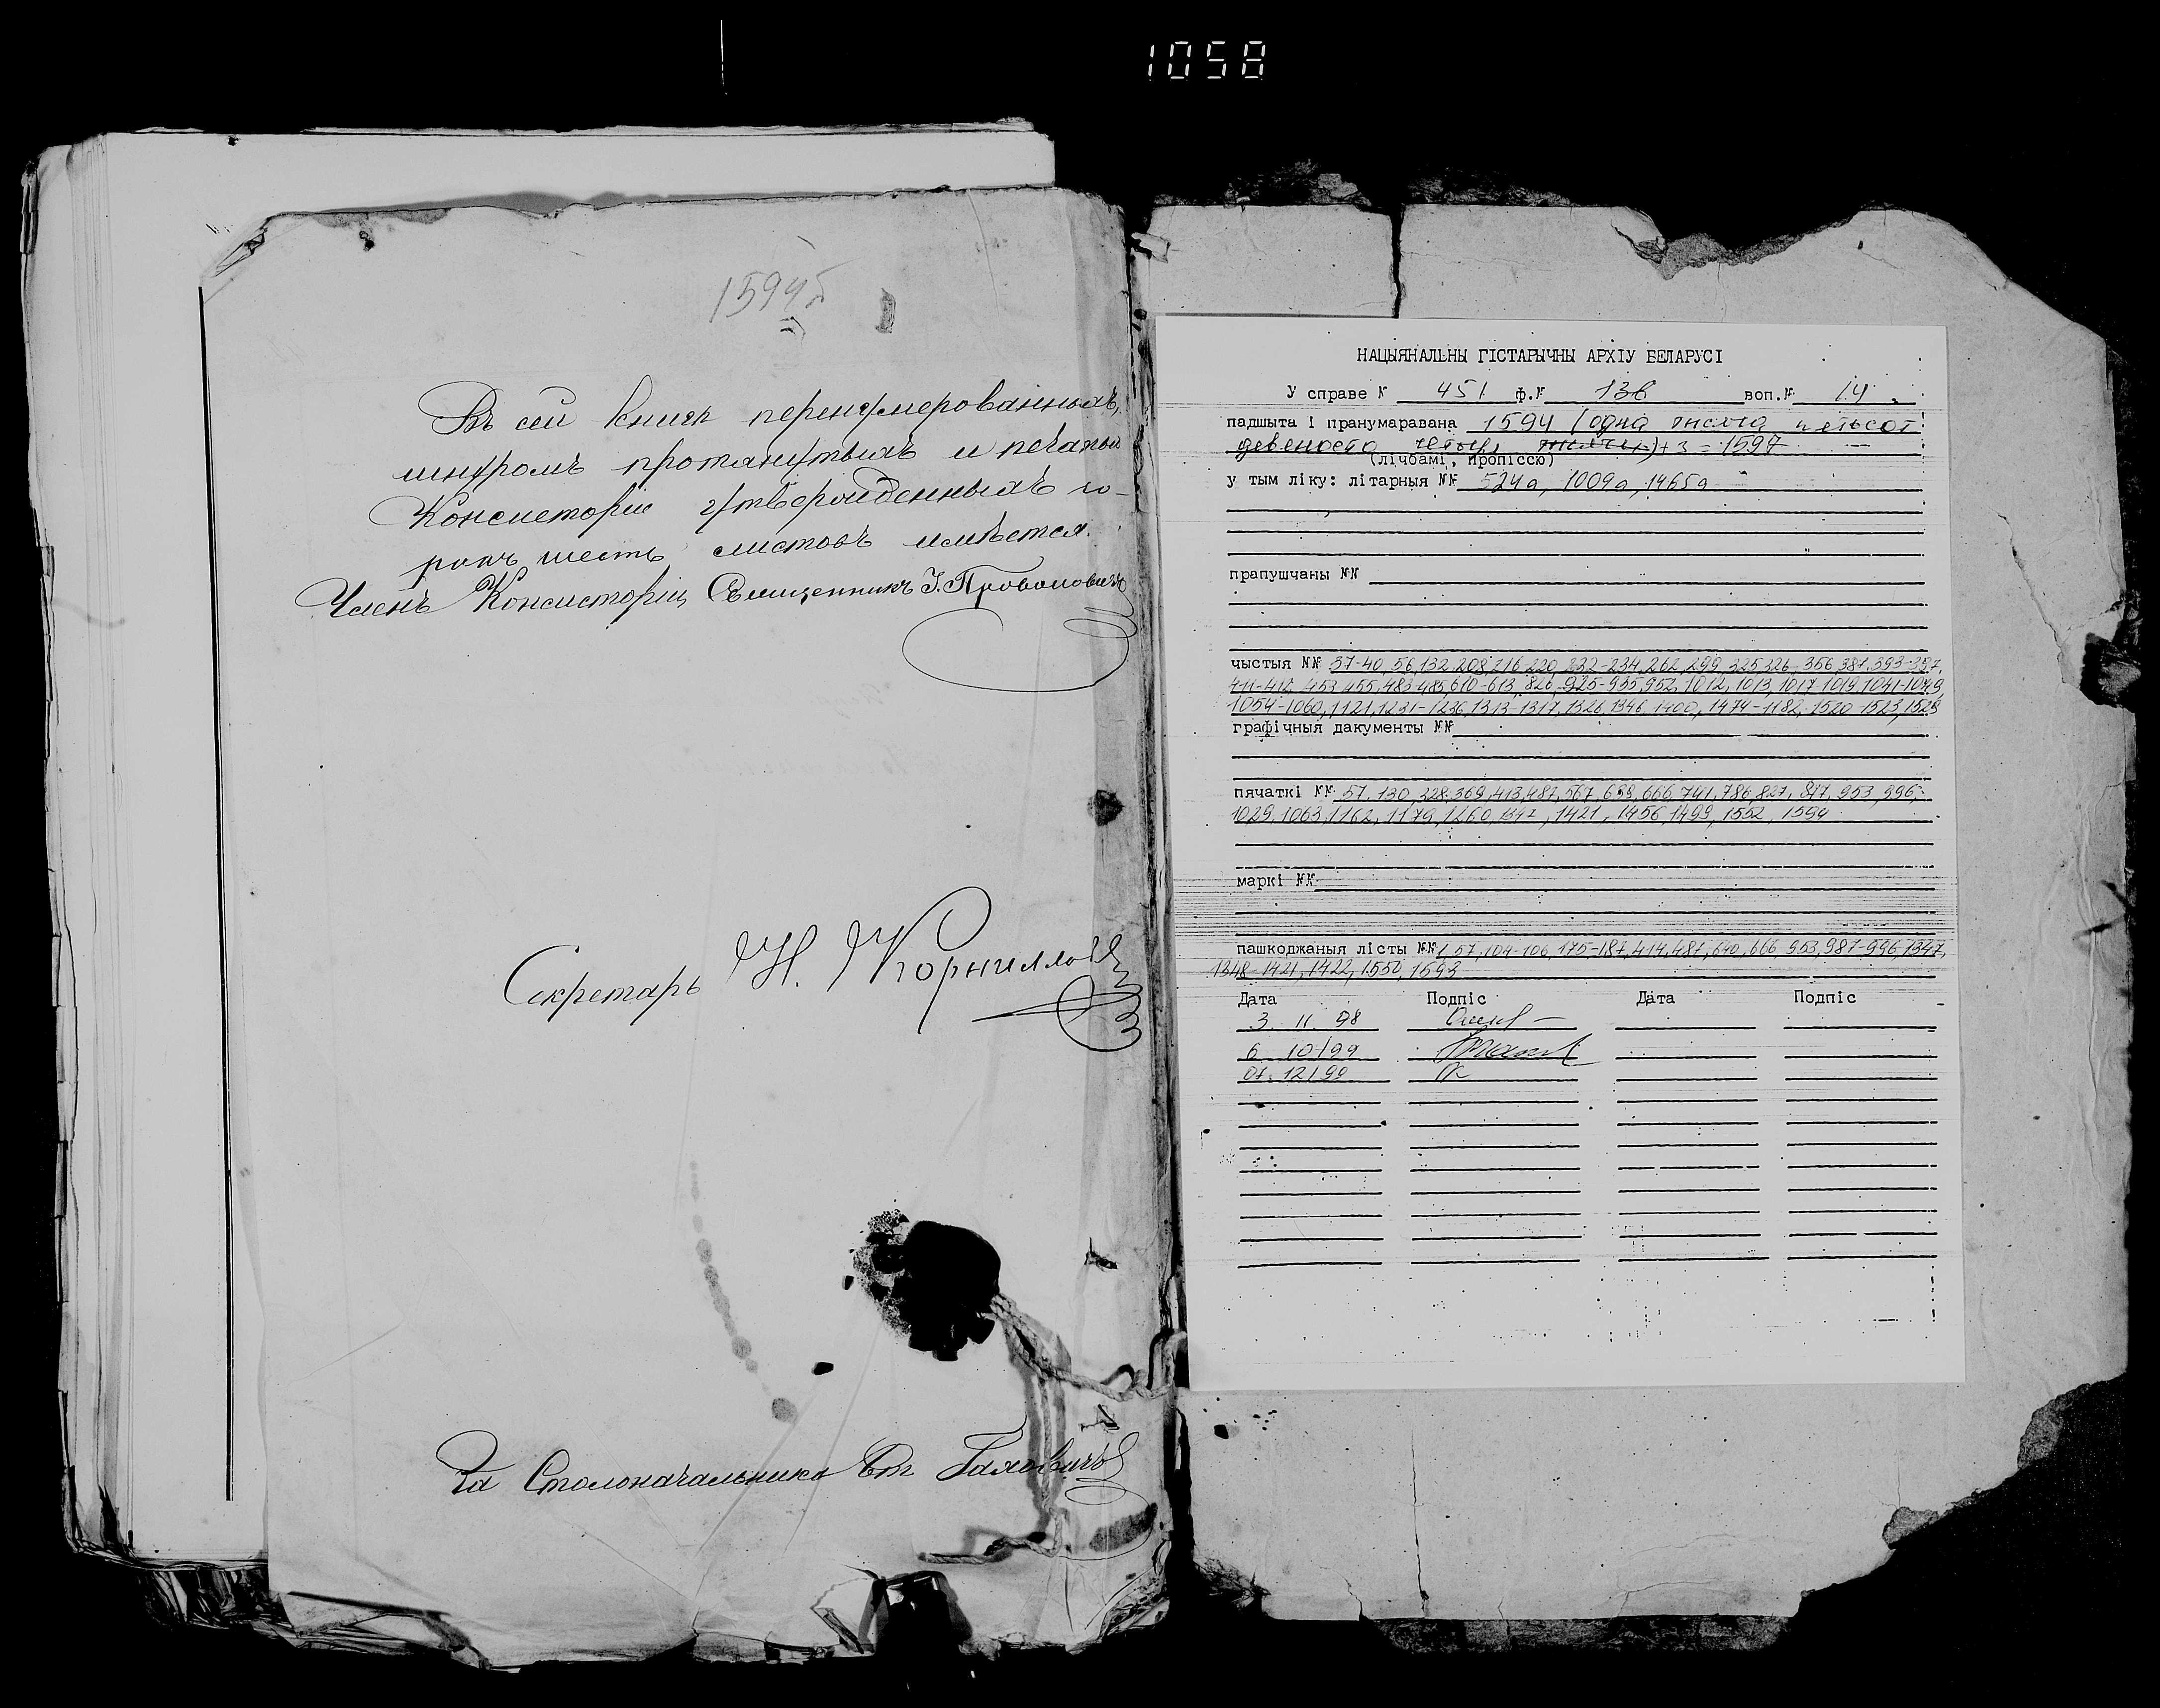 1058
1594б
Въ сей книгѣ перенумерованныхъ,
шнуромъ протянутыхъ и печатью
Консисторіи утвержденныхъ со-
рокъ шесть листовъ имѣется.
Членъ Консисторіи, Священникъ І.
Секретарь Н. Корниллов
За Столоначальника
НАЦЫЯНАЛЬНЫ ГІСТАРЫЧНЫ АРХІУ БЕЛАРУСІ
У справе № 451 ф.№ 136 воп.№ 14
падшыта і пранумаравана 1594 (одна тысяча пятьсот
девеносто четыре тысячи) + 3 = 1597
(лічбамі, пропіссю)
у тым ліку: літарныя №№ 524а, 1009а, 1465а
прапушчаны №№
чыстыя №№ 37-40, 56, 132, 208, 216, 220, 232-234, 262, 299, 325, 326, 356, 387, 393-397,
411-412, 453, 455, 483, 485, 610-613, 826, 925-935, 952, 1012, 1013, 1017, 1019, 1041-1049,
1054-1060, 1121, 1231-1236, 1313-1317, 1326, 1346, 1400, 1474-1182, 1520-1523, 1529
графічныя дакументы №№
пячаткі №№ 57, 130, 228, 369, 413, 487, 567, 639, 666, 741, 786, 827, 887, 953, 996,
1029, 1063, 1162, 1179, 1260, 1347, 1421, 1456, 1499, 1552, 1594
маркі №№
пашкоджаныя лісты №№ 1, 57, 104-106, 175-187, 414, 487, 640, 666, 953, 987-996, 1347,
1348-1421, 1422, 1550, 1593
Дата Подпіс Дата Подпіс
3. 11. 98
6 10/99
07. 12/99